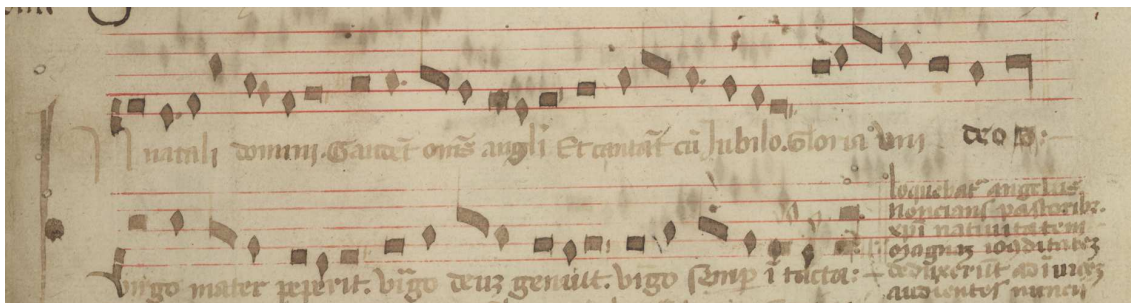 In natali domini. Gaudēt om̄s angli Et cantāt cū Iubilo. Gloria uni deo D:-
virgo mater peperit. v̄go deuz genuit. virgo semp̱ ī tacta:-
loquebat̄ angelus
noncians pastoribz.
xp̄i nativitatem
magnaz
audientes nuncii